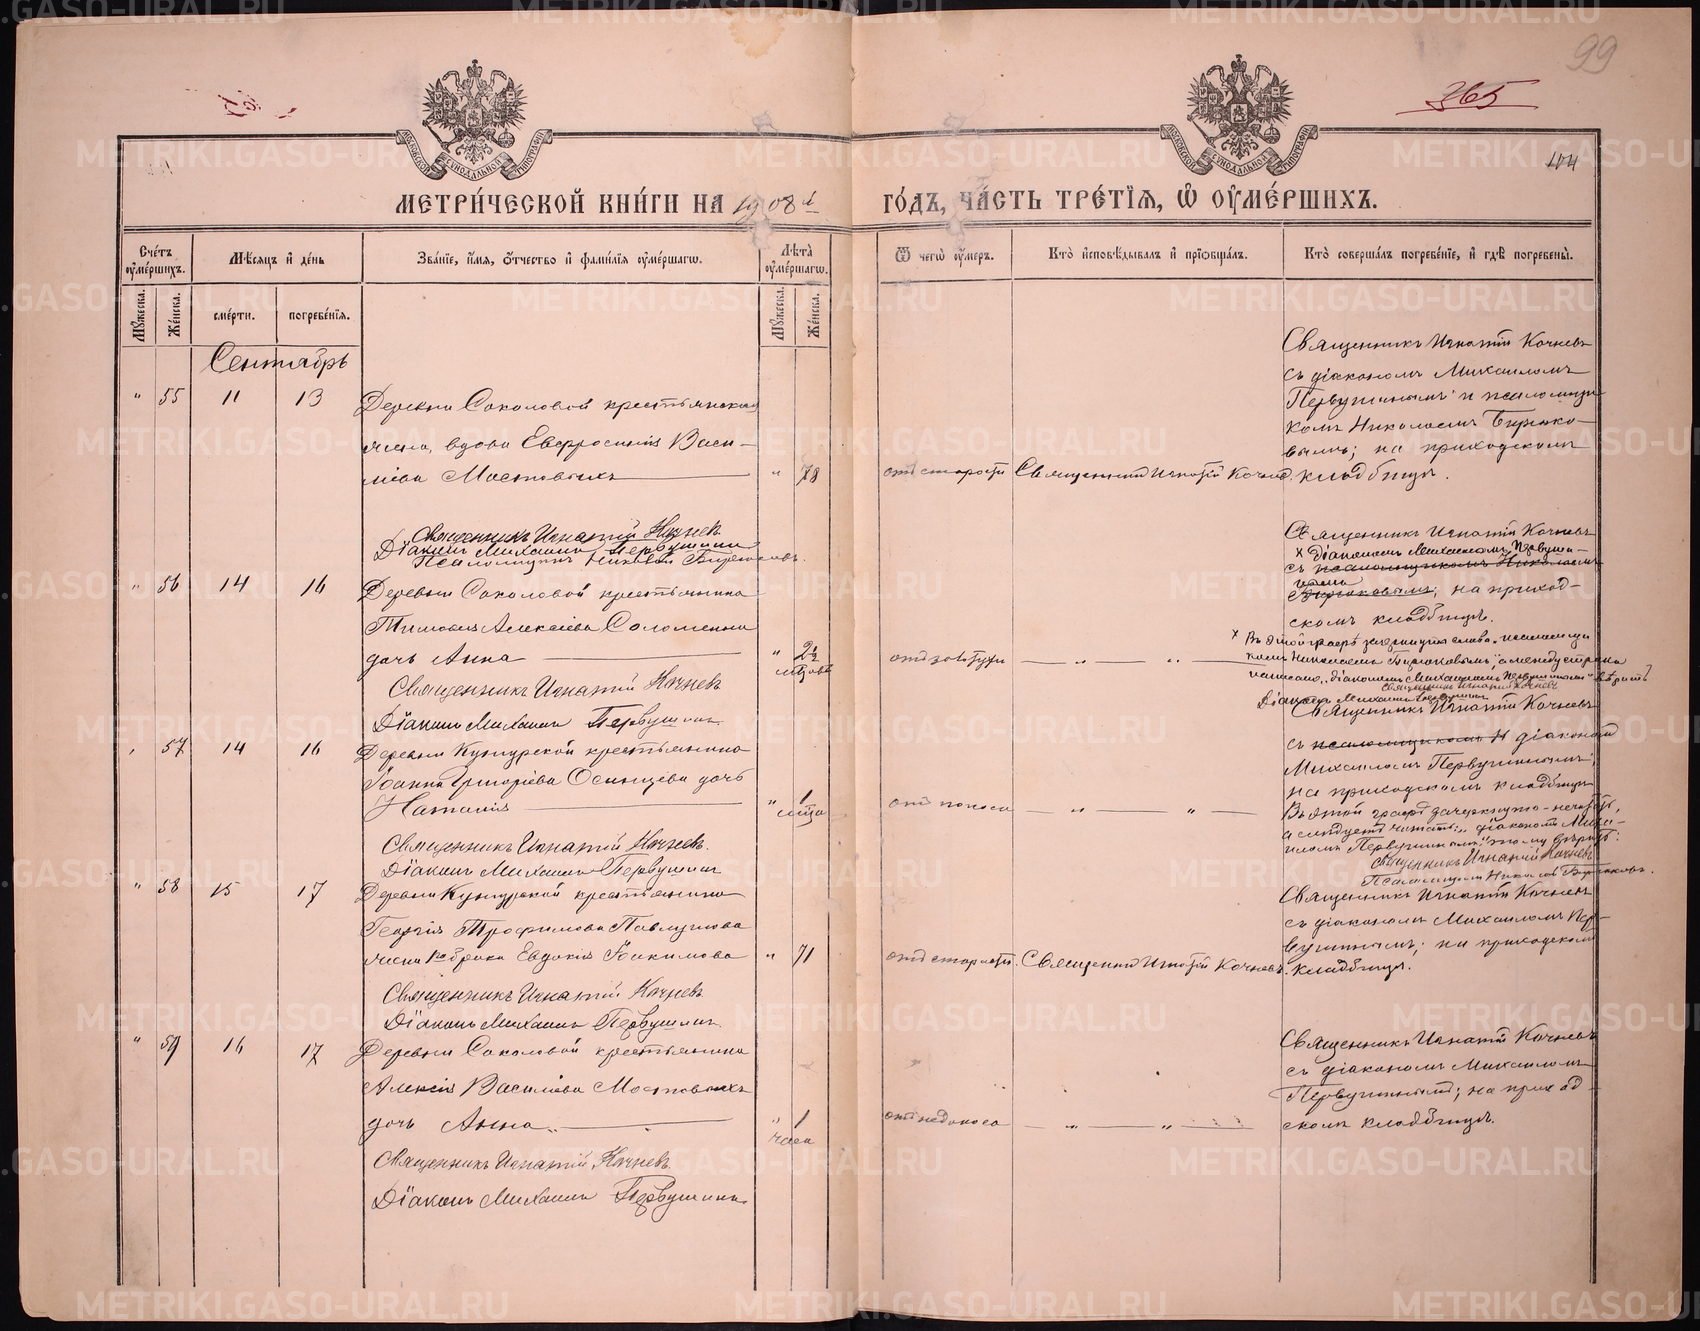 99
365
104
МЕТРИ́ЧЕСКОЙ КНИ́ГИ НА 1908й ГО́ДЪ, ЧА́СТЬ ТРЕ́ТІЯ, Ѡ ОУМЕ́РШИХЪ.
Сче́тъ оуме́ршихъ.
Мѣ́сяцъ и де́нь
Зва́ніе, и́мя, о́тчество и фами́лія оуме́ршагѡ.
Лѣта̀ оуме́ршагѡ.
Ѿ чегѡ̀ оу́меръ.
Кто̀ исповѣ́дывалъ и пріѡбща́лъ.
Кто̀ соверша́лъ погребе́ніе, и гдѣ̀ погребены̀.
Му́жеска.
Же́нска.
сме́рти.
погребе́нія.
Му́жеска.
Же́нска.
Сентябрь
" 55 11 13
Деревни Соколовой крестьянская
жена, вдова Евфросинія Васи-
ліева Мостовыхъ " 78
отъ старости
Священникъ Игнатій Кочнев.
Священникъ Игнатій Кочневъ
съ діакономъ Михаиломъ
Первушинымъ и псаломщи
комъ Николаемъ Бирюко-
вымъ; на приходскомъ
кладбищѣ.
Священникъ Игнатій Кочневъ
Діаконъ Михаилъ Первушинъ
Псаломщикъ Николай Бирюковъ.
" 56 14 16
Деревни Соколовой крестьянина
Тимофея Алексіева Соломеина
дочь Анна " 2½
мѣсяц
— " — " —
Священникъ Игнатій Кочневъ
× діакономъ Михаиломъ Первуши-
съ псаломщикомъ Николаемъ
нымъ
Бирюковымъ; на приход-
скомъ кладбищѣ.
× Въ этой графѣ зачеркнуто слова "псаломщи
комъ Николаемъ Бирюковымъ", а между строкъ
написано "діакономъ Михаиломъ Первушинымъ" вѣрить
Священникъ Игнатій Кочневъ
Діаконъ Михаилъ Первушинъ
Священникъ Игнатій Кочневъ
Діаконъ Михаилъ Первушинъ
57 14 16
Деревни Кунгурской крестьянина
Іоанна Григоріева Осинцева дочь
Наталія " 1
мѣсяца
отъ поноса
— " — " —
Священникъ Игнатій Кочневъ
съ псаломщикомъ Н діакономъ
Михаиломъ Первушинымъ;
на приходскомъ кладбищѣ
Въ этой графѣ зачеркнуто - нечитать,
а слѣдуетъ читать: "діакономъ Миха-
иломъ Первушинымъ" тому вѣрить:
Священникъ Игнатій Кочневъ
Псаломщикъ Николай Бирюковъ.
Священникъ Игнатій Кочневъ.
Діаконъ Михаилъ Первушинъ
" 58 15 17
Деревни Кунгурской крестьянина
Георгія Трофимова Павлушова
жена 1го брака Евдокія Іоакимова " 71
отъ старости.
Священникъ Игнатій Кочневъ.
Священникъ Игнатій Кочневъ
съ діакономъ Михаиломъ Пер-
вушинымъ; на приходскомъ
кладбищѣ.
Священникъ Игнатій Кочневъ
Діаконъ Михаилъ Первушинъ.
" 59 16 17
Деревни Соколовой крестьянина
Алексія Василіева Мостовыхъ
дочь Анна " 1
часа
отъ недоноса
— " — " —
Священникъ Игнатій Кочневъ
съ діакономъ Михаиломъ
Первушинымъ; на приход
скомъ кладбищѣ.
Священникъ Игнатій Кочневъ
Діаконъ Михаилъ Первушинъ.